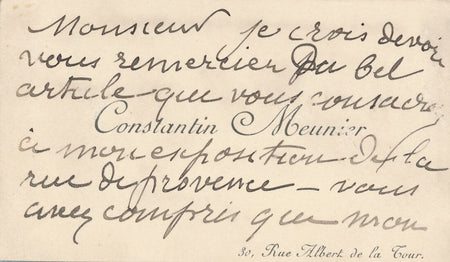 Monsieur je crois devoir
vous remercier du bel
article que vous consacrez
Constantin Meunier
à mon exposition de la
rue de provence – vous
avez compris que mon
30, Rue Albert de la Tour.